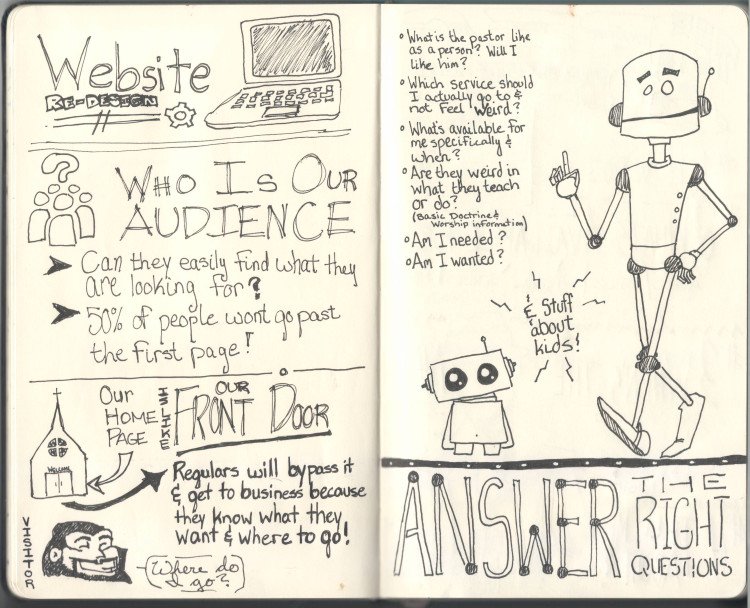 Website
RE-DESIGN
WHO IS OUR
AUDIENCE
Can they easily find what they
are looking for?
50% of people wont go past
the first page!
OUR
HOME
PAGE
IS LIKE
OUR
FRONT DOOR
WELCOME
Regulars will bypass it
& get to business because
they know what they
want & where to go!
VISITOR
Where do
I go?
What is the pastor like
as a person? Will I
like him?
Which service should
I actually go to &
not feel weird?
What's available for
me specifically &
when?
Are they weird in
what they teach
or do?
(Basic Doctrine &
Worship information)
Am I needed?
Am I wanted?
& Stuff
about
kids!
ANSWER
THE
RIGHT
QUESTIONS